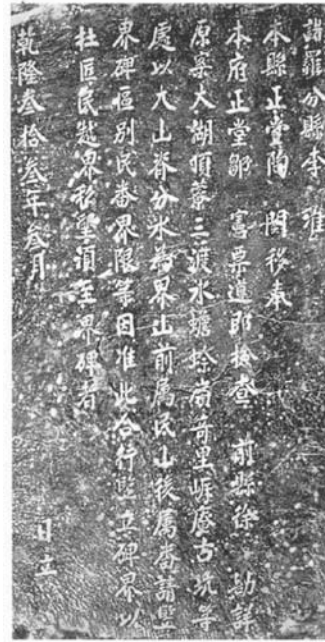 諸羅分縣李 准
本縣正堂陶 關移奉
本府正堂鄒 憲票遵即檢查 前縣徐 勘詳
原案大湖頂蓋三渡水蟾蜍崙奇里岸磨古坑等
處以大山脊分水為界山前屬民山後屬番請豎
界碑區別民番界限等因准此合行豎立碑界以
杜匠民越界移墾須至界碑者
乾隆叁拾叁年叁月 日立